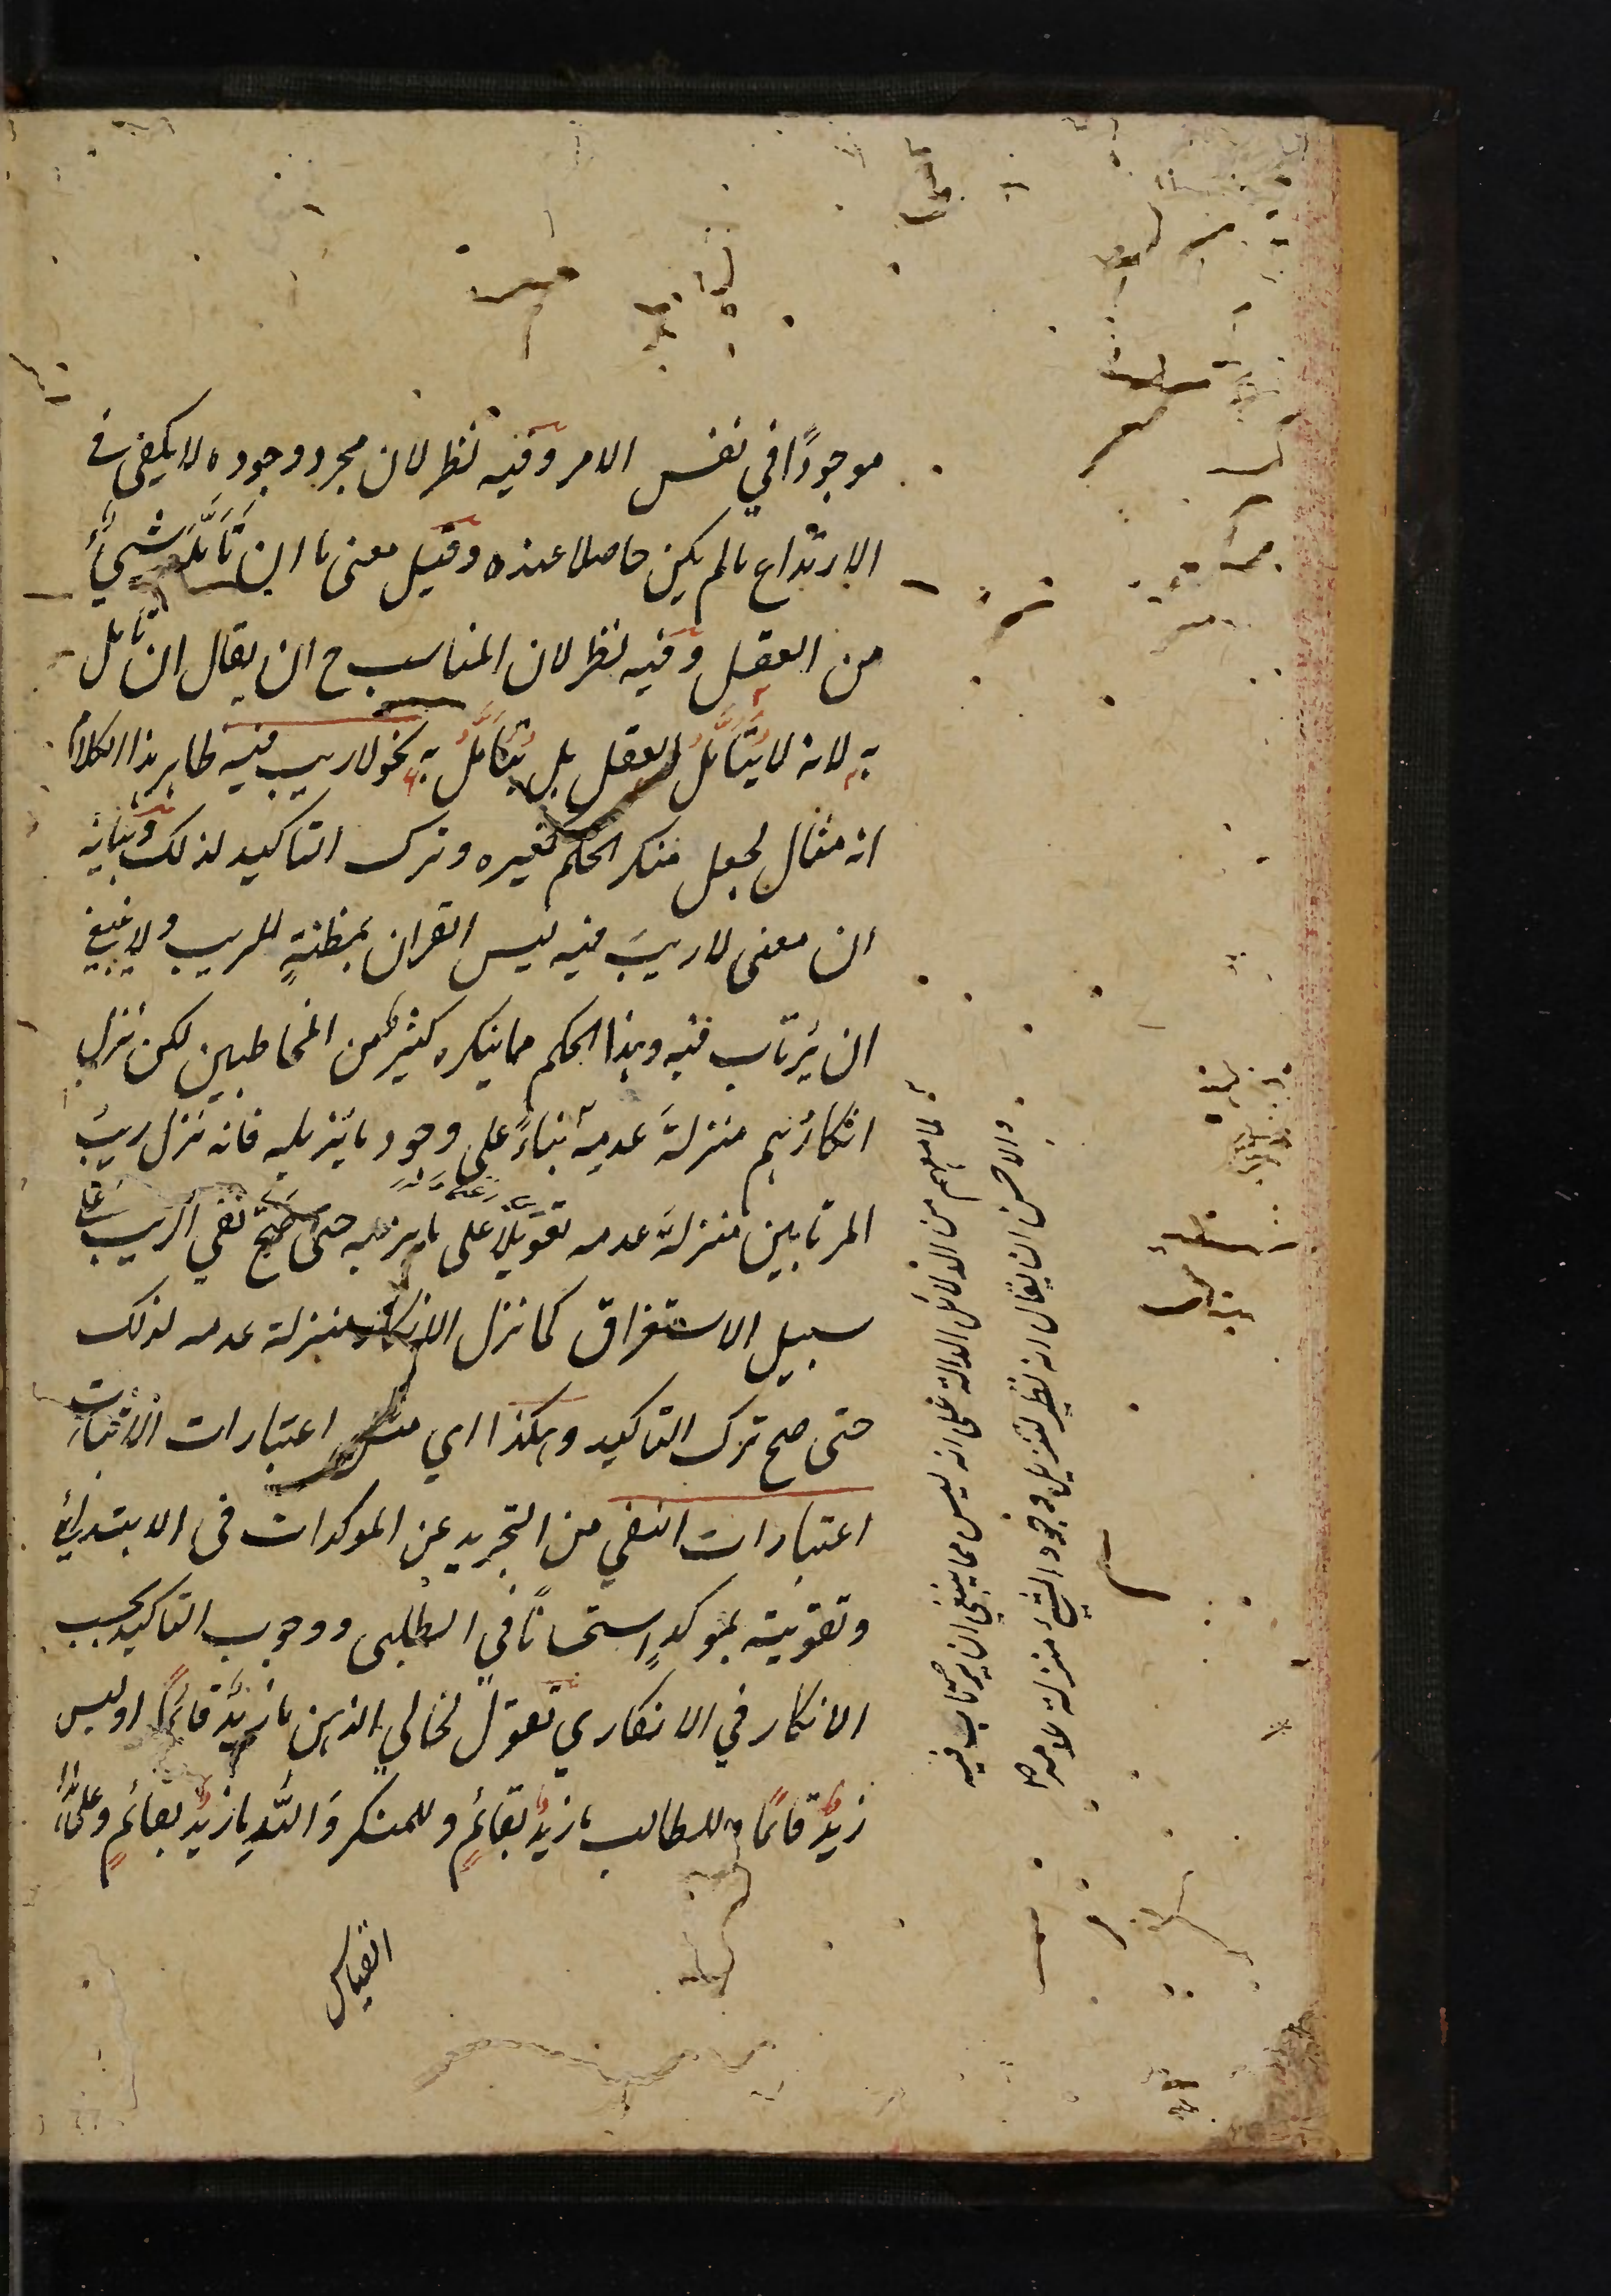 موجودًا في نفس الامر وفيه نظر لان مجرد وجوده لا يكفى فى
الارتداع مالم يكن حاصلا عنده وقيل معنى ما ان تَأَمَّلَه شيءٌ
من العقل وفيه نظر لان المناسب ح ان يقال ان تأمل
به لانه لا يُتَأَمَّلُ العقل بل يُتَأَمَّلُ به نحو لاريب فيه ظاهر هذا الكلام
انه مثال لجعل منكر الحكم كغيره وترك التاكيد لذلك وبيانه
ان معنى لاريبَ فيه ليس القران بمظنةٍ للريب ولا ينبغي
ان يُرتاب فيه وهذا الحكم مما ينكره كثير من المخاطبين لكن نزل
انكارُهم منزلةَ عدمه بناءً على وجود ما يزيله فانه نزل ريبُ
المرتابين منزلةَ عدمه تعويلًا على ما يزيله حتى صَحَّ نفي الريب على
سبيل الاستغراق كما نزل الانكار منزلة عدمه لذلك
حتى صح ترك التاكيد وهكذا اي مثل اعتبارات الاثبات
اعتبارات النفي من التجريد عن المؤكدات فى الابتدائي
وتقويته بمؤكدٍ استحسانًا في الطلبى ووجوب التاكيد بحسب
الانكار في الانكاري تقول لخالي الذهن ما زيدٌ قائمًا او ليس
زيدٌ قائمًا وللطالب ما زيدٌ بقائمٍ وللمنكر وَاللهِ ما زيدٌ بقائمٍ وعلى هذا
القياس
لما معهم من الدلائل الدالة على انه ليس مما ينبغي ان يرتاب فيه
والاحسن ان يقال انه نظير لتنزيل وجود الشيء منزلة عدمه